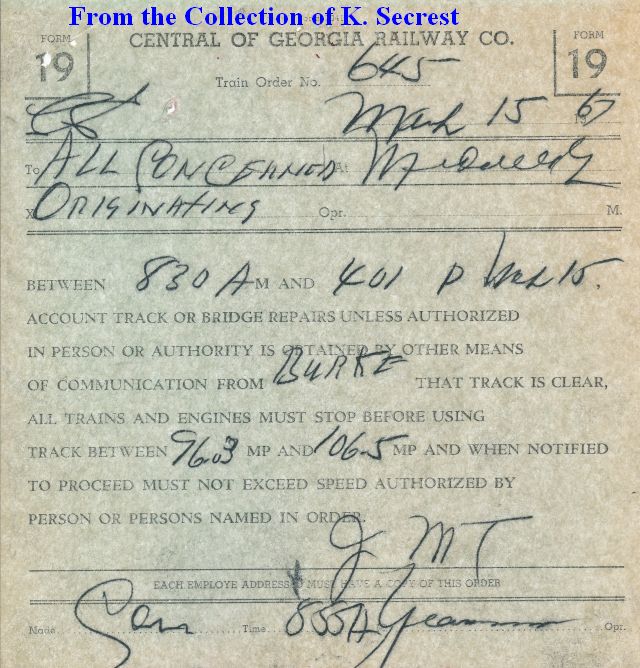 From the Collection of K. Secrest
FORM 19 CENTRAL OF GEORGIA RAILWAY CO. FORM 19
Train Order No. 645
March 15 1967
To ALL CONCERNED At
X ORIGINATING Opr. M.
BETWEEN 830 AM AND 401 P March 15.
ACCOUNT TRACK OR BRIDGE REPAIRS UNLESS AUTHORIZED
IN PERSON OR AUTHORITY IS OBTAINED BY OTHER MEANS
OF COMMUNICATION FROM BURKE THAT TRACK IS CLEAR,
ALL TRAINS AND ENGINES MUST STOP BEFORE USING
TRACK BETWEEN 96.3 MP AND 106.5 MP AND WHEN NOTIFIED
TO PROCEED MUST NOT EXCEED SPEED AUTHORIZED BY
PERSON OR PERSONS NAMED IN ORDER.
J M T
EACH EMPLOYE ADDRESSED MUST HAVE A COPY OF THIS ORDER
Made Com Time 855A Opr.